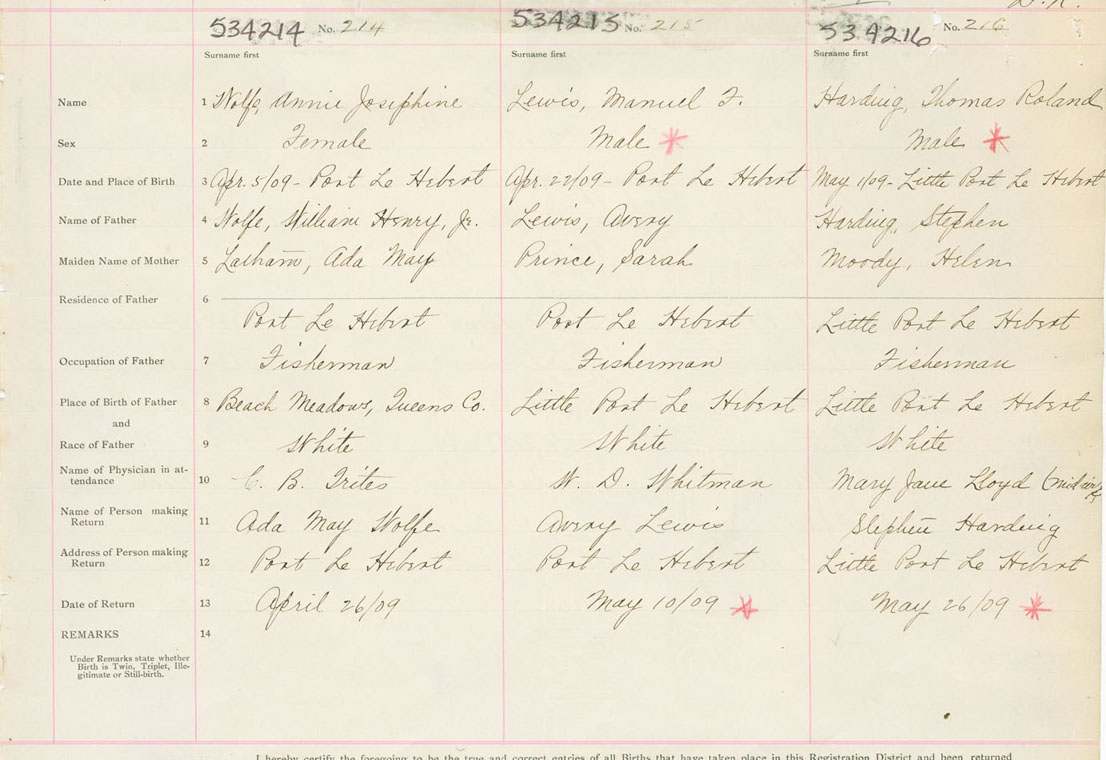 D. R.
534214 No. 214 534215 No. 215 534216 No. 216
Surname first Surname first Surname first
Name 1 Wolfe, Annie Josephine Lewis, Manuel F. Harding, Thomas Roland
Sex 2 Female Male * Male *
Date and Place of Birth 3 Apr. 5/09 - Port Le Hebert Apr. 22/09 - Port Le Hebert May 1/09 - Little Port Le Hebert
Name of Father 4 Wolfe, William Henry, Jr. Lewis, Avery Harding, Stephen
Maiden Name of Mother 5 Ada May Prince, Sarah Moody, Helen
Residence of Father 6
Port Le Hebert Port Le Hebert Little Port Le Hebert
Occupation of Father 7 Fisherman Fisherman Fisherman
Place of Birth of Father 8 Beach Meadows, Queens Co. Little Port Le Hebert Little Port Le Hebert
and
Race of Father 9 White White White
Name of Physician in at-
tendance 10 C. B. Trites W. D. Whitman Mary Jane Lloyd (midwife)
Name of Person making
Return 11 Ada May Wolfe Avery Lewis Stephen Harding
Address of Person making
Return 12 Port Le Hebert Port Le Hebert Little Port Le Hebert
Date of Return 13 April 26/09 May 10/09 * May 26/09 *
REMARKS 14
Under Remarks state whether
Birth is Twin, Triplet, Ille-
gitimate or Still-birth.
I hereby certify the foregoing to be the true and correct entries of all Births that have taken place in this Registration District and been returned